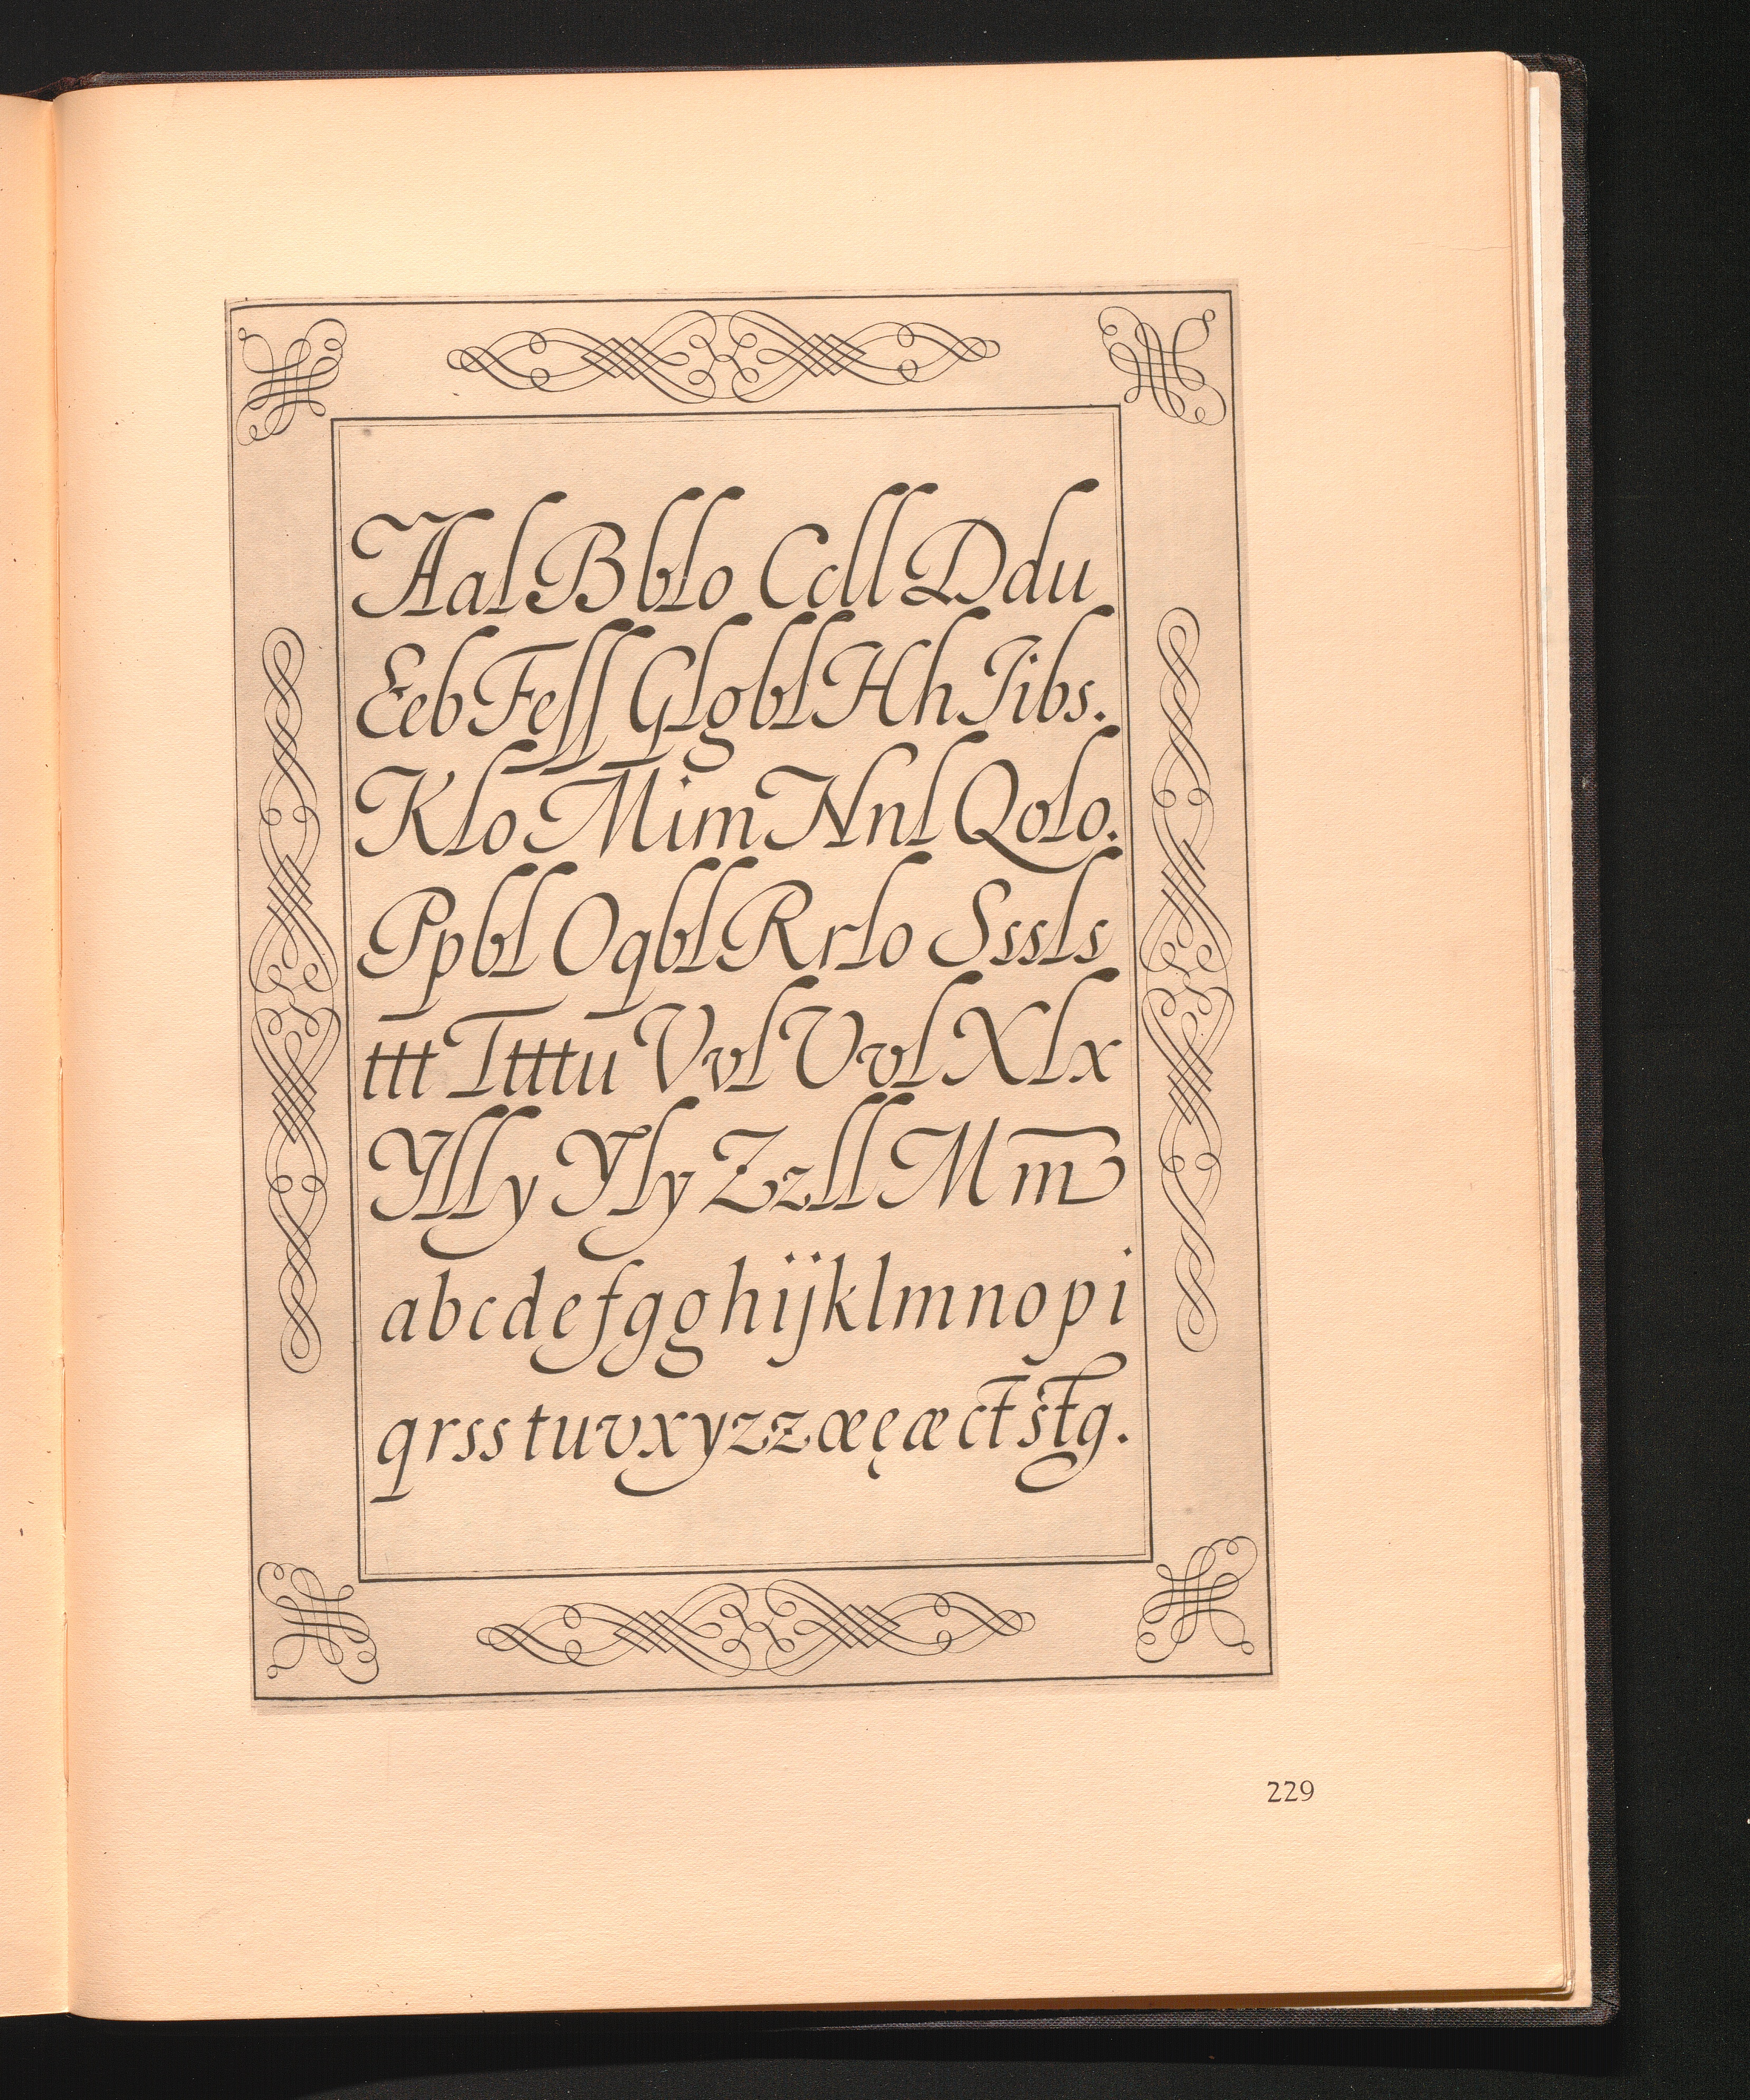 Aal Bblo Ccll Ddu
Eeb Feſſ Glgbl Hh Iibs.
Klo Mim Nnl Qolo.
Ppbl Oqbl Rrlo Sssls
ttt Ttttu Vvl Vvl Xlx
Ylly Yly Zzll Mm
abcdefgghijklmnopi
qrsstuvxyzzœęæctstg.
229